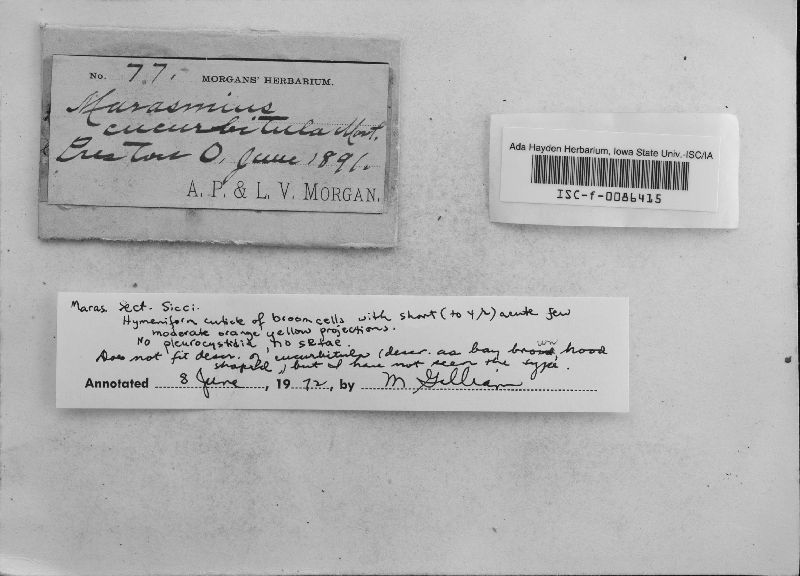 No. 77. MORGANS' HERBARIUM.
Marasmius
cucurbitula Mont.
Preston O, June 1891.
A. P. & L. V. MORGAN.
Ada Hayden Herbarium, Iowa State Univ.-ISC/IA
ISC-f-0086415
Maras. sect. Sicci.
Hymeniform cuticle of broom cells with short (to 4 μ) acute few
moderate orange yellow projections.
No pleurocystidia, no setae.
Does not fit descr. of cucurbitula (descr. as bay brown hood
shaped), but I have not seen the type.
Annotated 8 June, 1972, by M Gilliam